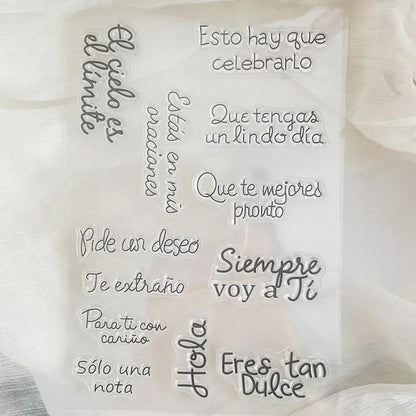 El cielo es
el límite
Esto hay que
celebrarlo
Estás en mis
oraciones
Que tengas
un lindo día
Que te mejores
pronto
Pide un deseo
Siempre
voy a Tí
Te extraño
Para ti con
cariño
Hola
Eres tan
Dulce
Sólo una
nota